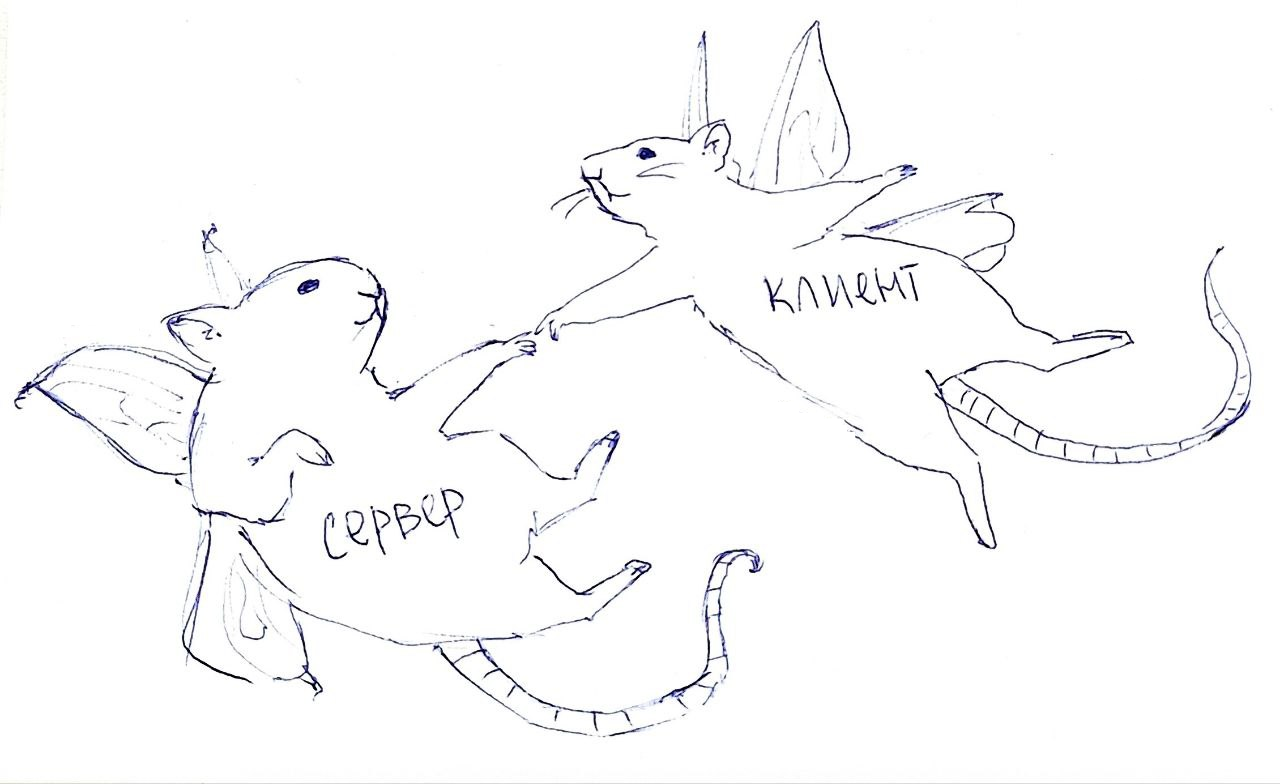 клиент
сервер